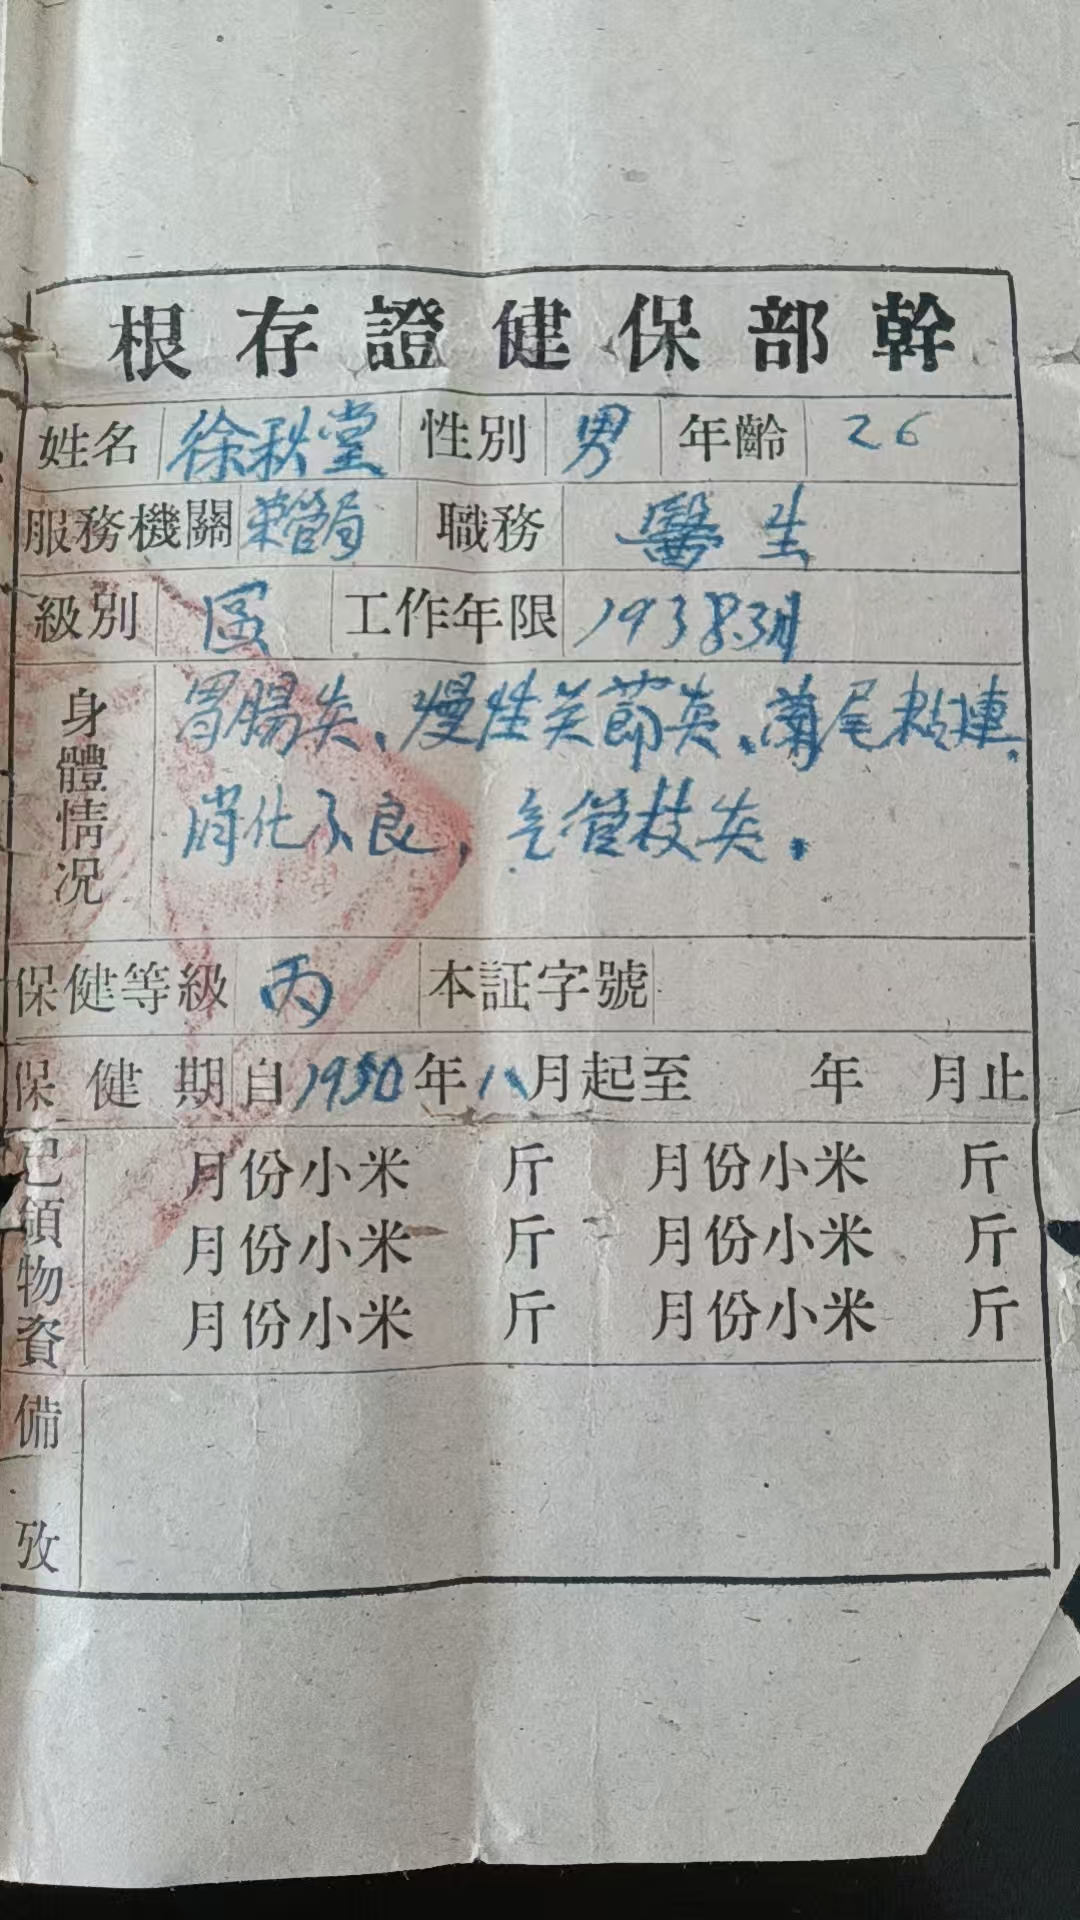 幹部保健證存根
姓名 徐秋堂 性別 男 年齡 26
服務機關 管局 職務 醫生
級別 區 工作年限 1938.3月
身體情況 胃腸炎、慢性关節炎、蘭尾粘連、
消化不良，气管枝炎。
保健等級 丙 本証字號
保健期 自1950年 月起至 年 月止
已領物資 月份小米 斤 月份小米 斤
月份小米 斤 月份小米 斤
月份小米 斤 月份小米 斤
備攷